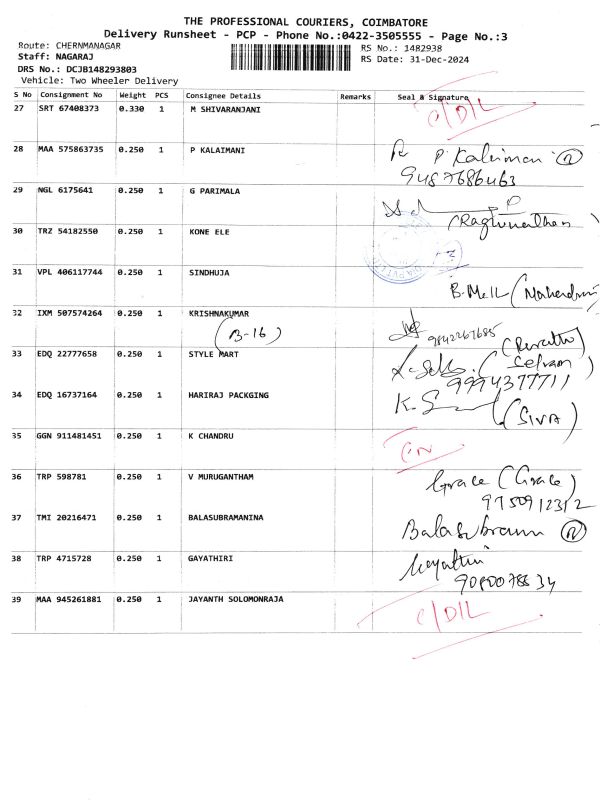 THE PROFESSIONAL COURIERS, COIMBATORE
Delivery Runsheet - PCP - Phone No.:0422-3505555 - Page No.:3
Route: CHERNMANAGAR RS No.: 1482938
Staff: NAGARAJ RS Date: 31-Dec-2024
DRS No.: DCJB148293803
Vehicle: Two Wheeler Delivery
S No Consignment No Weight PCS Consignee Details Remarks Seal & Signature
27 SRT 67408373 0.330 1 M SHIVARANJANI C/D/L
28 MAA 575863735 0.250 1 P KALAIMANI P. Kalaimani
9487686463
29 NGL 6175641 0.250 1 G PARIMALA
(Raghunathan)
30 TRZ 54182550 0.250 1 KONE ELE
31 VPL 406117744 0.250 1 SINDHUJA
32 IXM 507574264 0.250 1 KRISHNAKUMAR
(B-16) 9842267685
33 EDQ 22777658 0.250 1 STYLE MART
9994377711
34 EDQ 16737164 0.250 1 HARIRAJ PACKGING K. S (SIVA)
35 GGN 911481451 0.250 1 K CHANDRU
36 TRP 598781 0.250 1 V MURUGANTHAM Grace (Grace)
9750912312
37 TMI 20216471 0.250 1 BALASUBRAMANINA
38 TRP 4715728 0.250 1 GAYATHIRI Gayathiri
39 MAA 945261881 0.250 1 JAYANTH SOLOMONRAJA C/D/L